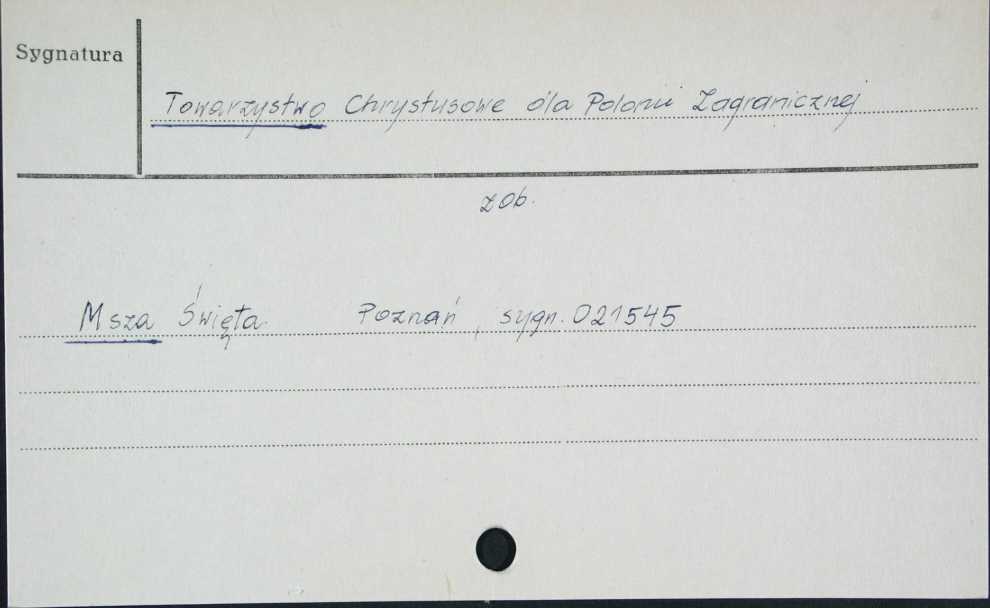 Sygnatura
Towarzystwo Chrystusowe dla Polonii Zagranicznej
zob.
Msza Święta Poznań, sygn. 021545